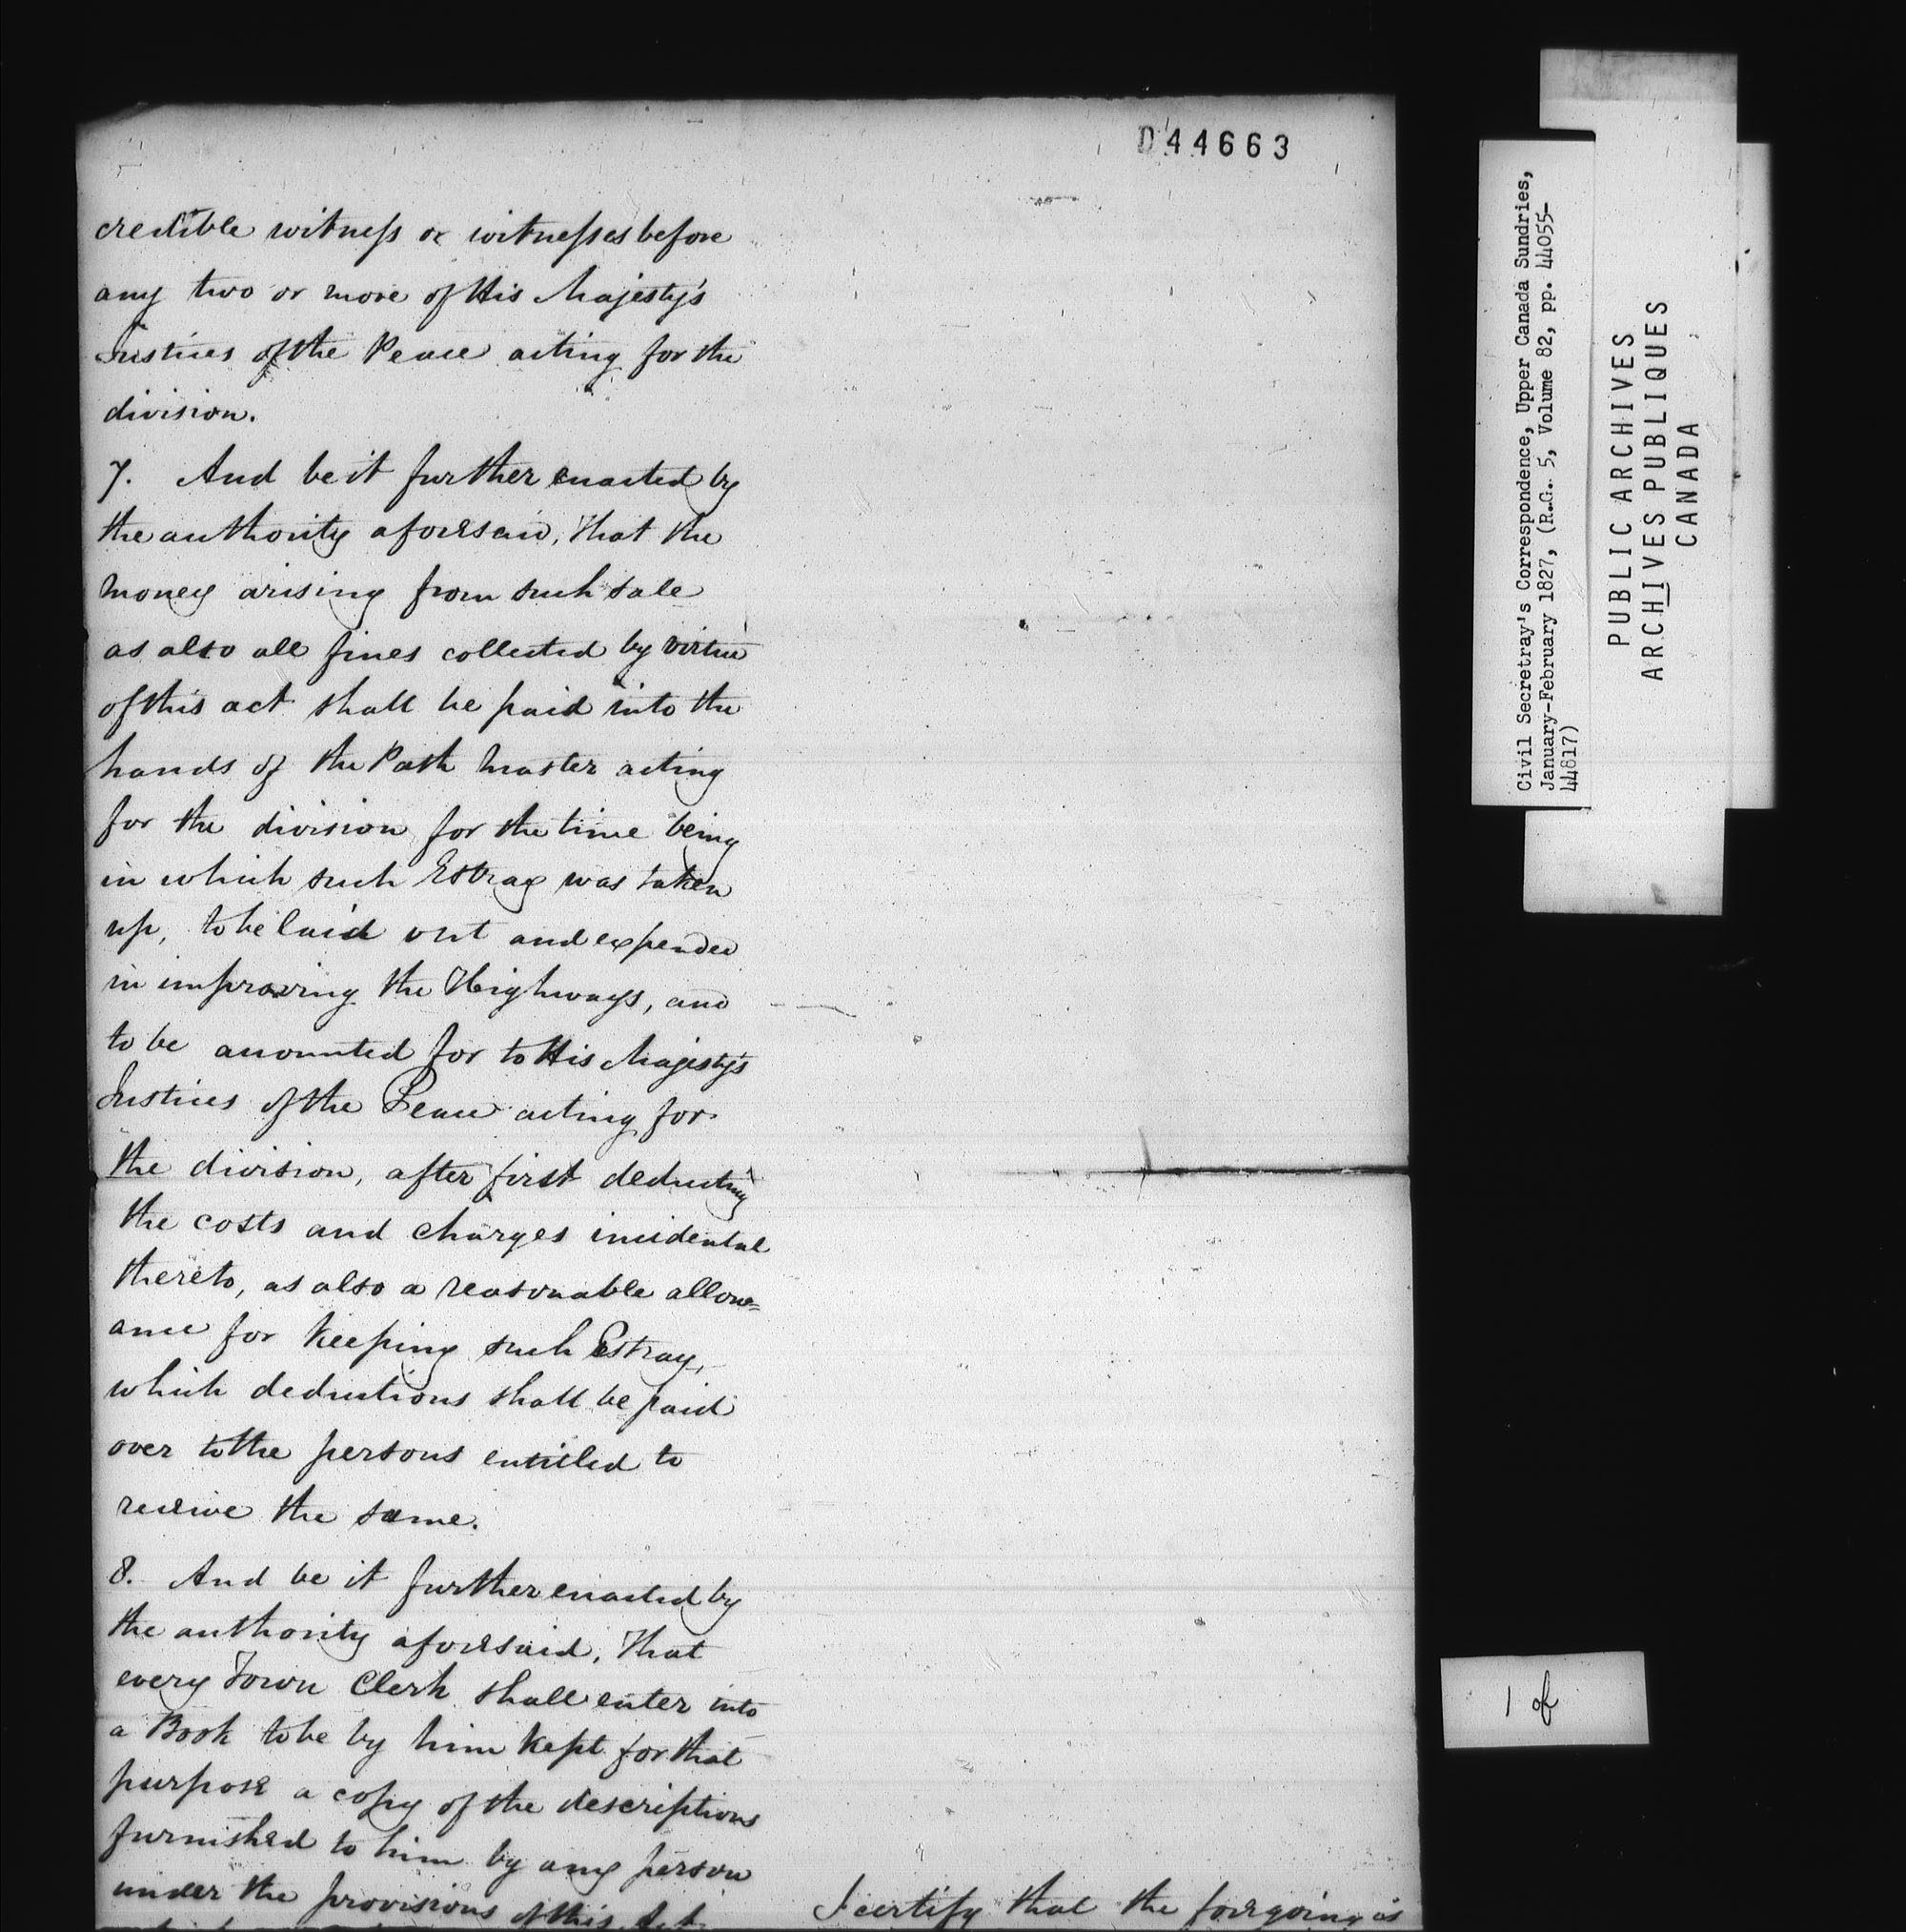 D44663
credible witness or witnesses before
any two or more of His Majesty's
Justices of the Peace acting for the
division.
7. And be it further enacted by
the authority aforesaid, That the
money arising from such sale
as also all fines collected by virtue
of this act shall be paid into the
hands of the Path Master acting
for the division for the time being
in which such Estray was taken
up, to be laid out and expended
in improving the Highways, and
to be accounted for to His Majesty's
Justices of the Peace acting for
the division, after first deducting
the costs and charges incidental
thereto, as also a reasonable allow=
ance for keeping such Estray,
which deductions shall be paid
over to the persons entitled to
receive the same.
8. And be it further enacted by
the authority aforesaid, That
every Town Clerk shall enter into
a Book to be by him kept for that
purpose a copy of the descriptions
furnished to him by any person
under the provisions of this Act
I certify that the foregoing is
Civil Secretray's Correspondence, Upper Canada Sundries,
January-February 1827, (R.G. 5, Volume 82, pp. 44055-
44817)
PUBLIC ARCHIVES
ARCHIVES PUBLIQUES
CANADA
1 of